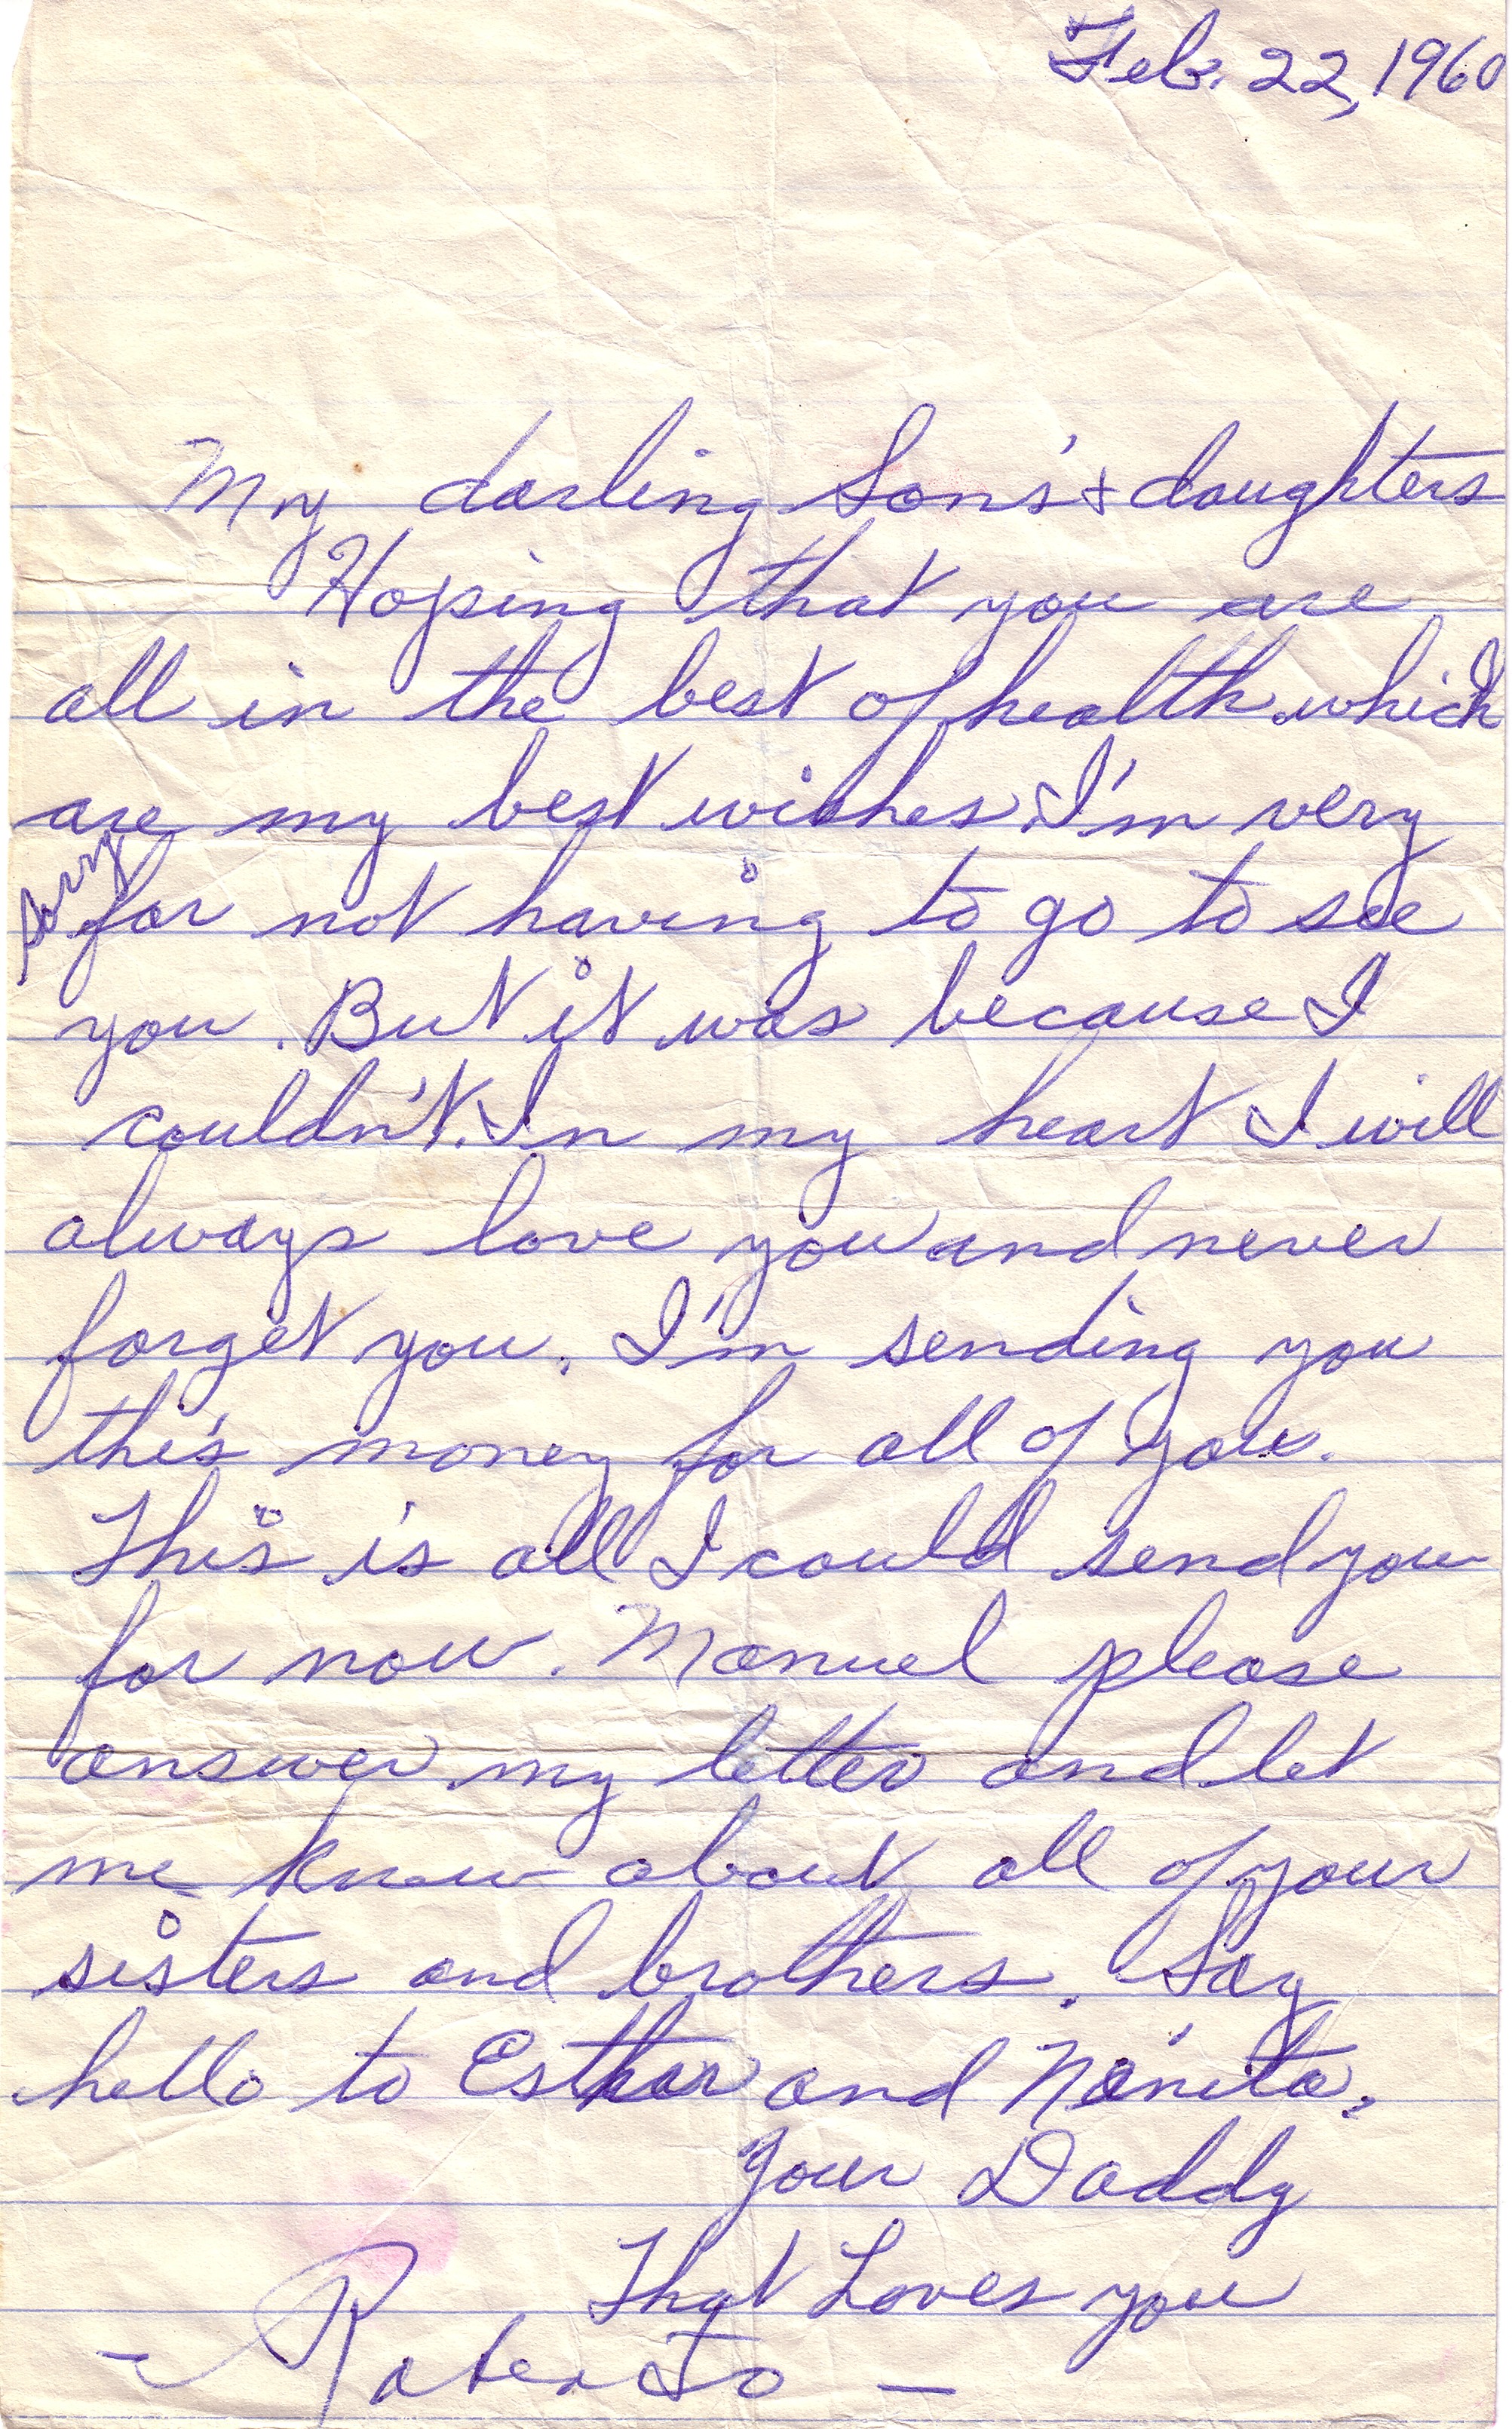 Feb. 22, 1960
My darling Son's & daughters
Hoping that you are
all in the best of health which
are my best wishes. I'm very
sorry for not having to go to see
you. But it was because I
couldn't. In my heart I will
always love you and never
forget you. I'm sending you
this money for all of you.
This is all I could send you
for now. Manuel please
answer my letter and let
me know about all of your
sisters and brothers. Say
hello to Esthar and Nánita.
Your Daddy
That Loves you
- Roberto -